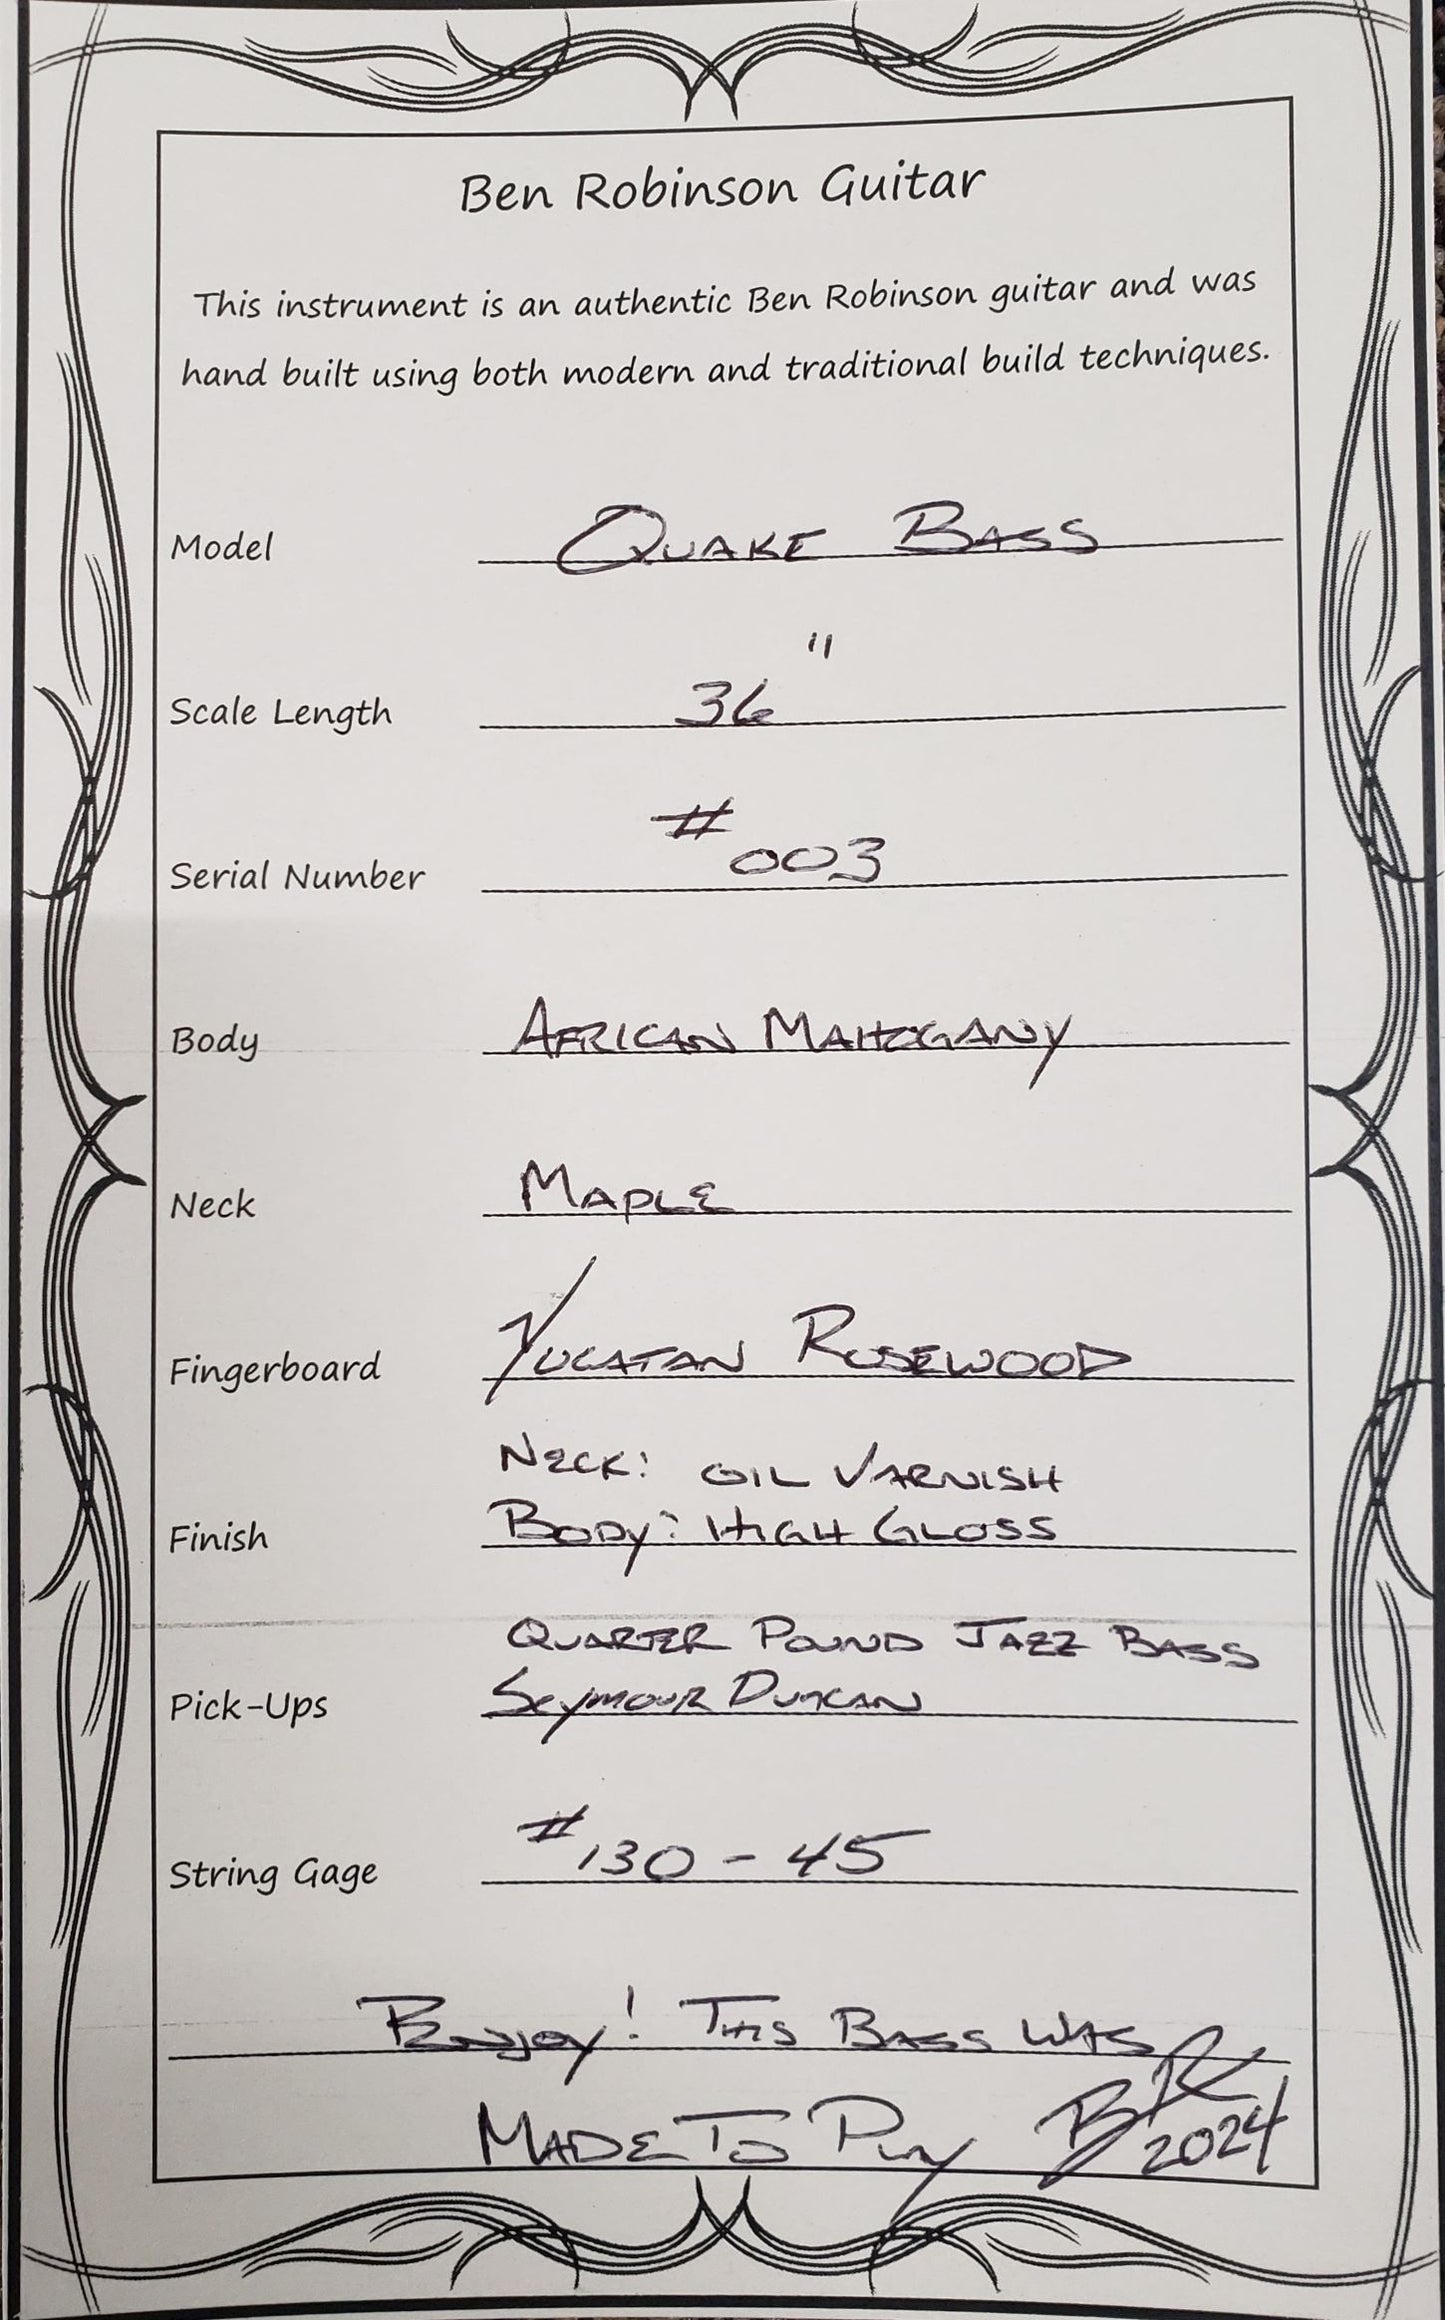 Ben Robinson Guitar
This instrument is an authentic Ben Robinson guitar and was
hand built using both modern and traditional build techniques.
Model Quake Bass
Scale Length 36"
Serial Number #003
Body African Mahogany
Neck Maple
Fingerboard Yucatan Rosewood
Neck: Oil Varnish
Finish Body: High Gloss
Quarter Pound Jazz Bass
Pick-Ups Seymour Duncan
String Gage #130-45
Enjoy! This Bass Was
Made To Play BR
2024